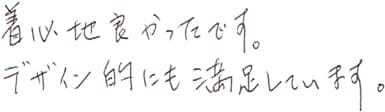 着心地良かったです。
デザイン的にも満足しています。